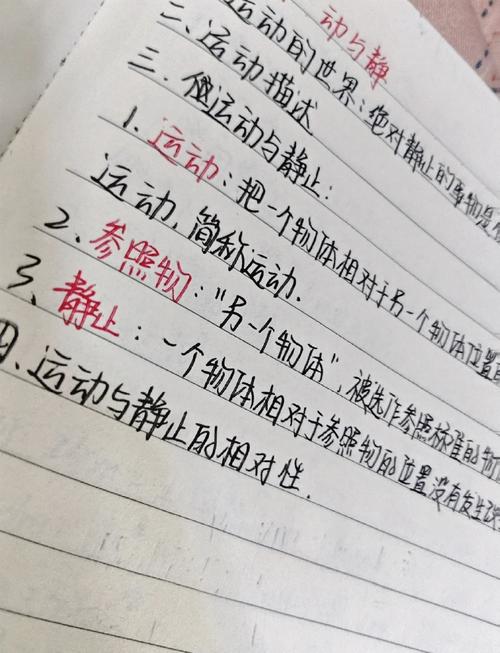 动与静
运动的世界:绝对静止的事物是
二、运动描述
三、运动与静止:
1. 运动:把一个物体相对于另一个物体位置
运动,简称运动.
2. 参照物:"另一个物体",被选作参照标准的物
3、静止:一个物体相对于参照物的位置没有发生
四、运动与静止的相对性.